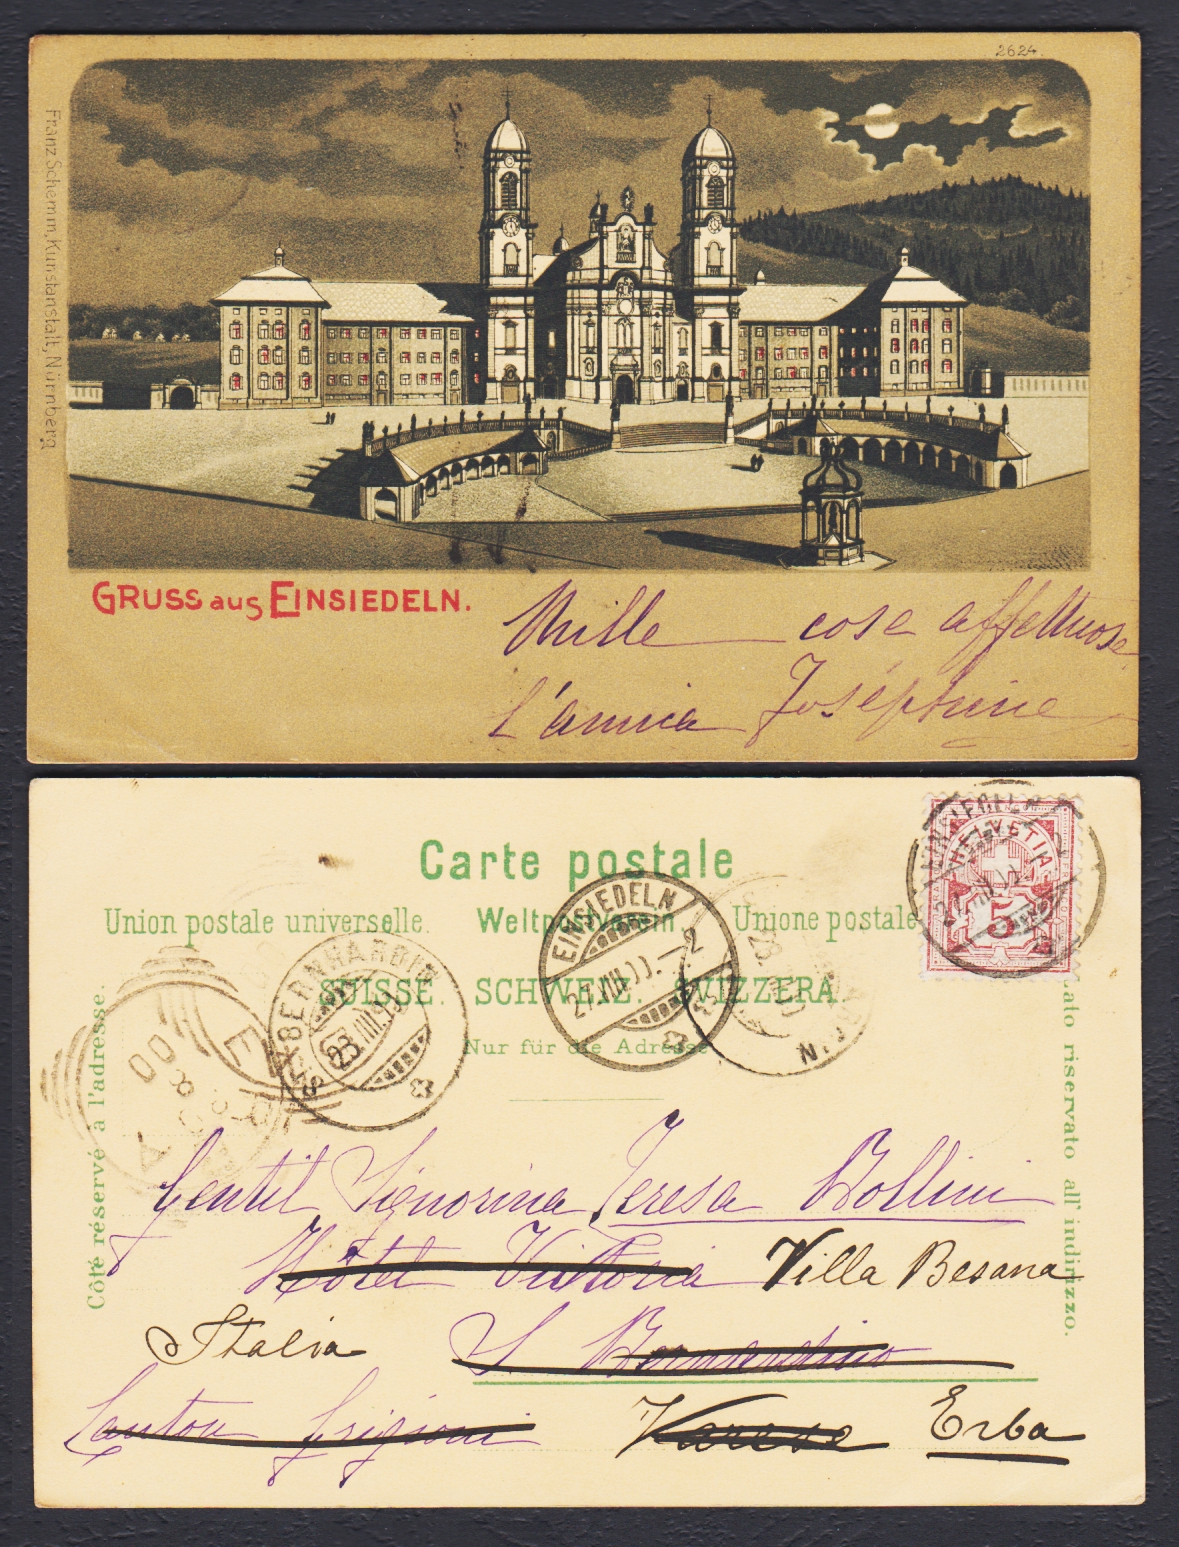 2624.
Franz Schemm, Kunstanstalt, Nürnberg
GRUSS aus EINSIEDELN.
Mille cose affettuose
l'amica Joséphine
Carte postale
Union postale universelle. Weltpostverein. Unione postale
SUISSE. SCHWEIZ. SVIZZERA.
Nur für die Adresse
Côté réservé à l'adresse.
Lato riservato all' indirizzo.
HELVETIA
5
EINSIEDELN
EINSIEDELN
27.VIII.00.-2
BERNHARDIN
28.VIII.
ERBA
Gentil Signorina Teresa Bollini
Hôtel Victoria Villa Besana
Italia S Bernardino
Canton Grigioni Varese Erba